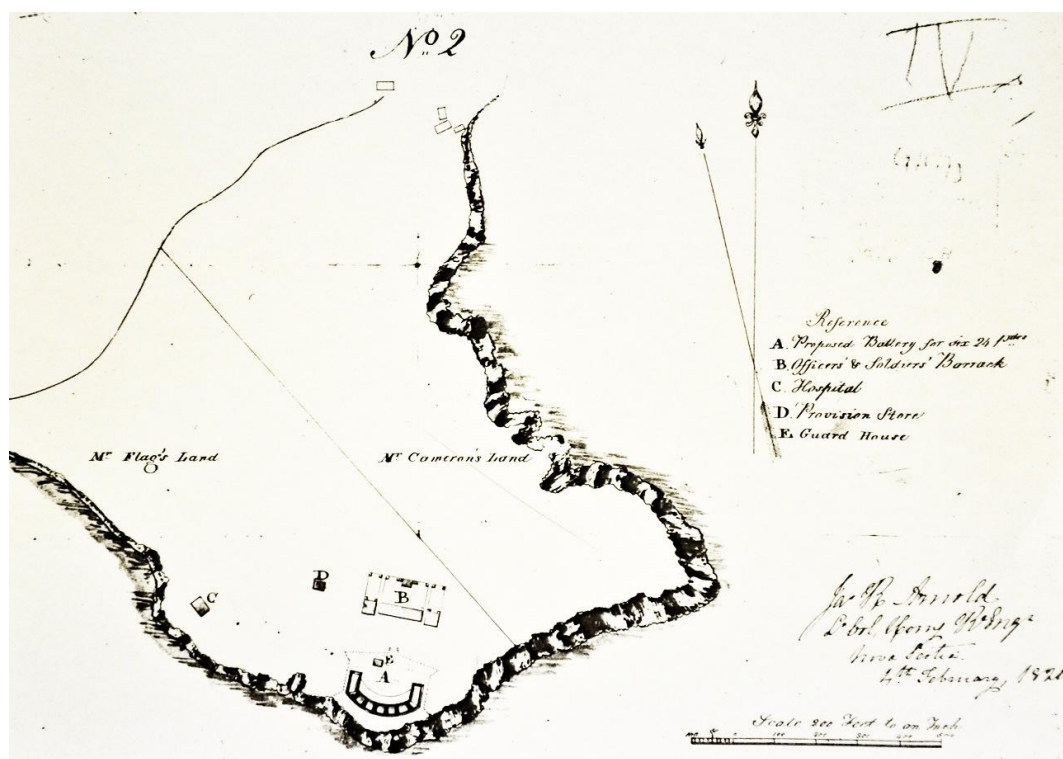 No. 2
IV
Reference
A. Proposed Battery for six 24 pdrs
B. Officers' & Soldiers' Barrack
C. Hospital
D. Provision Store
E. Guard House
Mr Flag's Land
Mr Cameron's Land
D
B
C
E
A
Jas R Arnold
Lt Col, Comg Rl Engrs
Nova Scotia
4th February, 182
Scale 200 Feet to an Inch
100 0 100 200 300 400 500